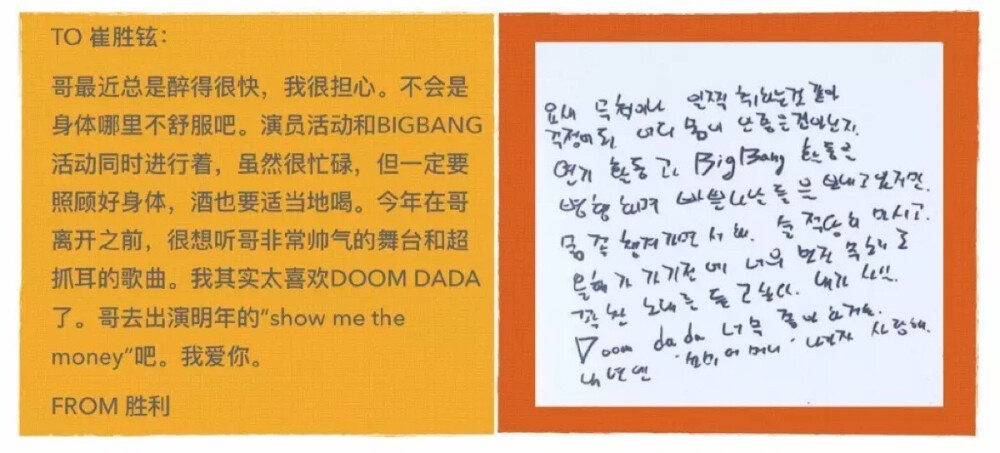 TO 崔胜铉：
哥最近总是醉得很快，我很担心。不会是
身体哪里不舒服吧。演员活动和BIGBANG
活动同时进行着，虽然很忙碌，但一定要
照顾好身体，酒也要适当地喝。今年在哥
离开之前，很想听哥非常帅气的舞台和超
抓耳的歌曲。我其实太喜欢DOOM DADA
了。哥去出演明年的“show me the
money”吧。我爱你。
FROM 胜利
요새 부쩍이나 일찍 취하는것 같아
걱정이돼 어디 몸이 안좋은건아닌지.
연기 활동과 BigBang 활동을
병행하며 바쁜나날들을 보내고 있지만.
몸 꼭 챙겨가면서해. 술 적당히 마시고.
올해가 가기전에 너무 멋진 목소리로
꽉 찬 노래를 듣고싶다. 내가 사실
Doom dada 너무 좋아하거든.
내년엔 쇼미더머니 나가자 사랑해.